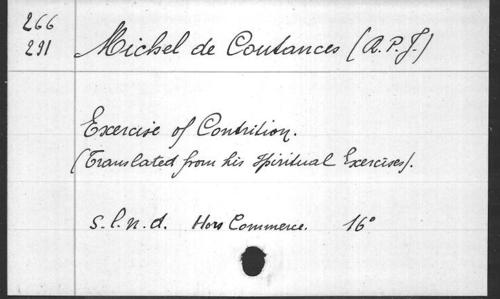 266
291
Michel de Coutances (A.P.J.)
Exercise of Contrition.
(Translated from his Spiritual Exercises).
s.l.n.d. Hors Commerce. 16°